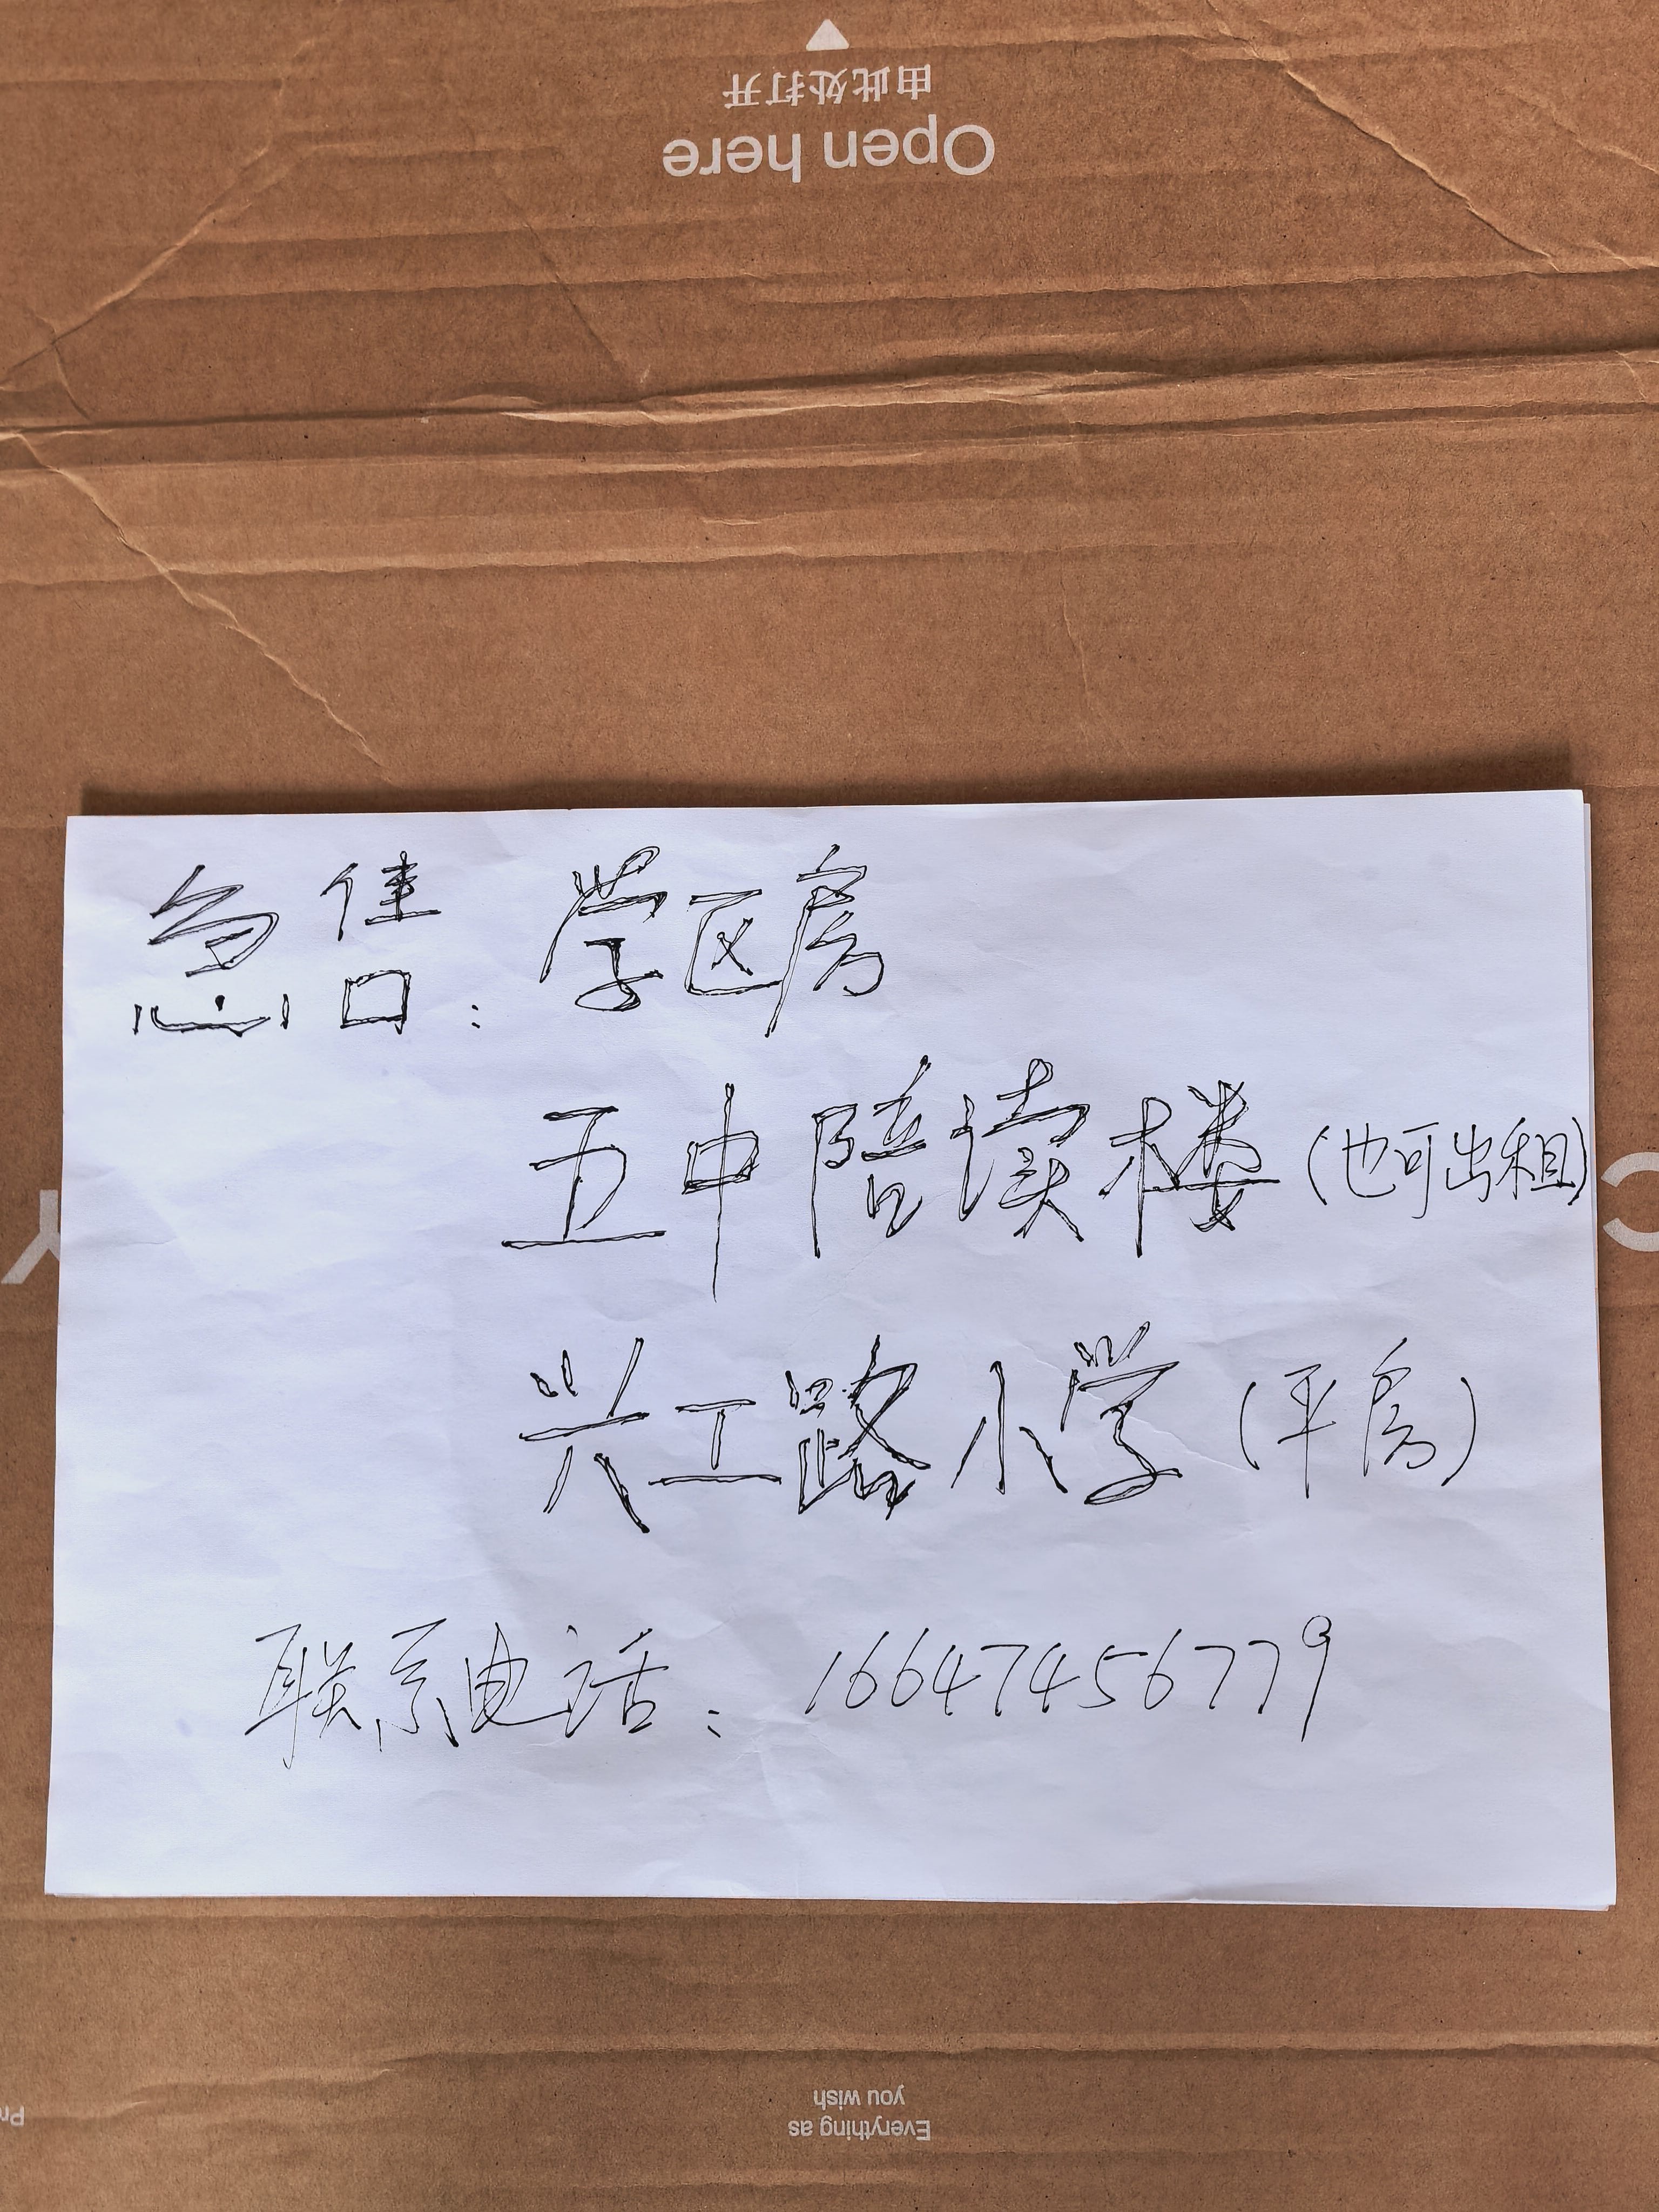 由此处打开
Open here
急售：学区房
五中陪读楼（也可出租）
兴工路小学（平房）
联系电话：16647456779
Everything as
you wish